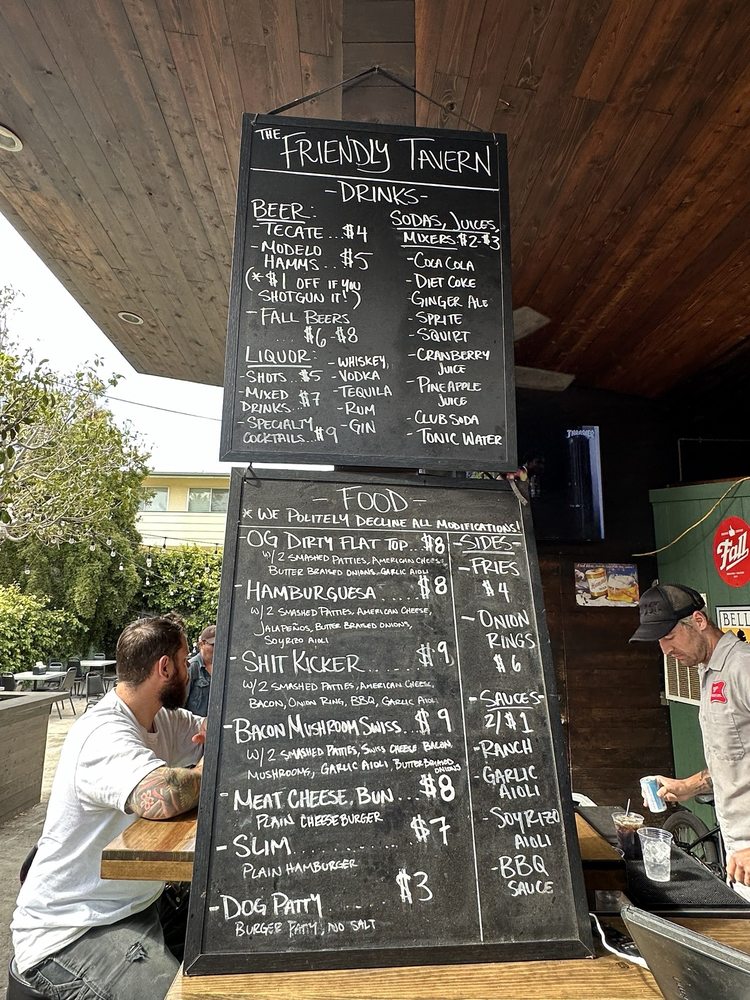 THE FRIENDLY TAVERN
-DRINKS-
BEER:
-TECATE...$4
-MODELO
HAMMS...$5
(*$1 OFF IF YOU
SHOTGUN IT!)
-FALL BEERS
... $6-$8
LIQUOR:
-SHOTS...$5
-MIXED $7
DRINKS...
-SPECIALTY
COCKTAILS..$9
-WHISKEY,
-VODKA
-TEQUILA
-RUM
-GIN
SODAS, JUICES,
MIXERS:$2-$3
-COCA COLA
-DIET COKE
-GINGER ALE
-SPRITE
-SQUIRT
-CRANBERRY
JUICE
-PINEAPPLE
JUICE
-CLUB SODA
-TONIC WATER
-FOOD-
*WE POLITELY DECLINE ALL MODIFICATIONS!
-OG DIRTY FLAT TOP..$8
W/2 SMASHED PATTIES, AMERICAN CHEESE,
BUTTER BRAISED ONIONS, GARLIC AIOLI
-HAMBURGUESA........$8
W/2 SMASHED PATTIES, AMERICAN CHEESE,
JALAPEÑOS, BUTTER BRAISED ONIONS,
SOYRIZO AIOLI
-SHIT KICKER........$9
W/2 SMASHED PATTIES, AMERICAN CHEESE,
BACON, ONION RING, BBQ, GARLIC AIOLI
-BACON MUSHROOM SWISS...$9
W/2 SMASHED PATTIES, SWISS CHEESE BACON,
MUSHROOMS, GARLIC AIOLI, BUTTER BRAISED
ONIONS
-MEAT, CHEESE, BUN....$8
PLAIN CHEESEBURGER
-SLIM............$7
PLAIN HAMBURGER
-DOG PATTY........$3
BURGER PATTY, NO SALT
-SIDES-
-FRIES
$4
-ONION
RINGS
$6
-SAUCES-
2/$1
-RANCH
-GARLIC
AIOLI
-SOYRIZO
AIOLI
-BBQ
SAUCE
THRASHER
Fall
BELL